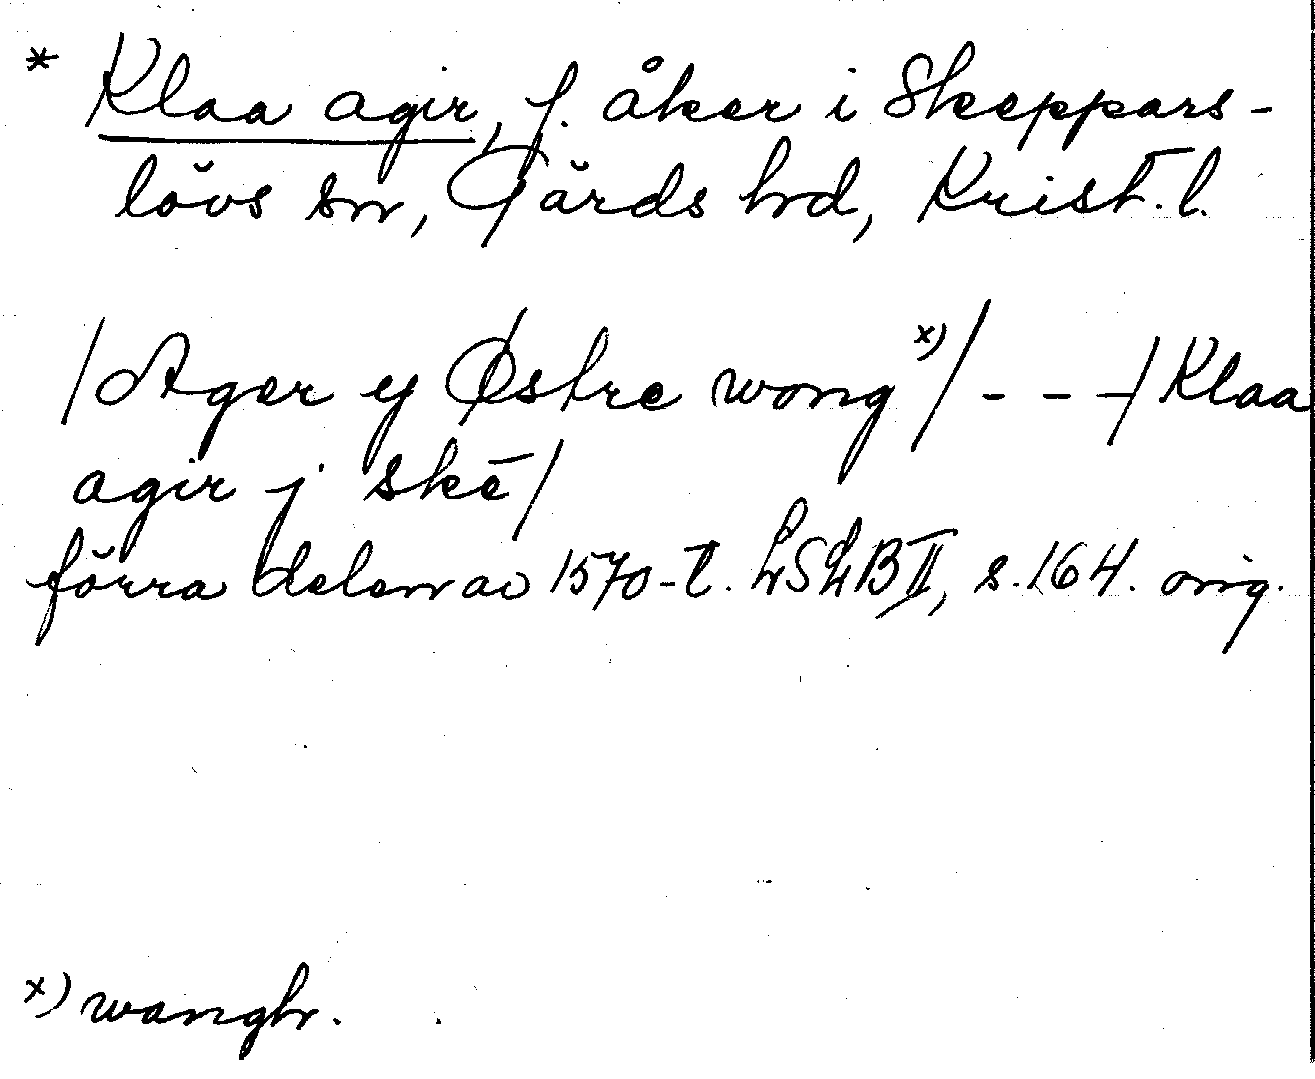 * Klaa agir, f. åker i Skeppars-
lövs sn, Gärds hd, Krist. l.
/Ager y Østre wong x)/ - - -/ Klaa
agir j skē/
förra delen av 1570-t. LSLB II, s. 164. orig.
x) wanghr.